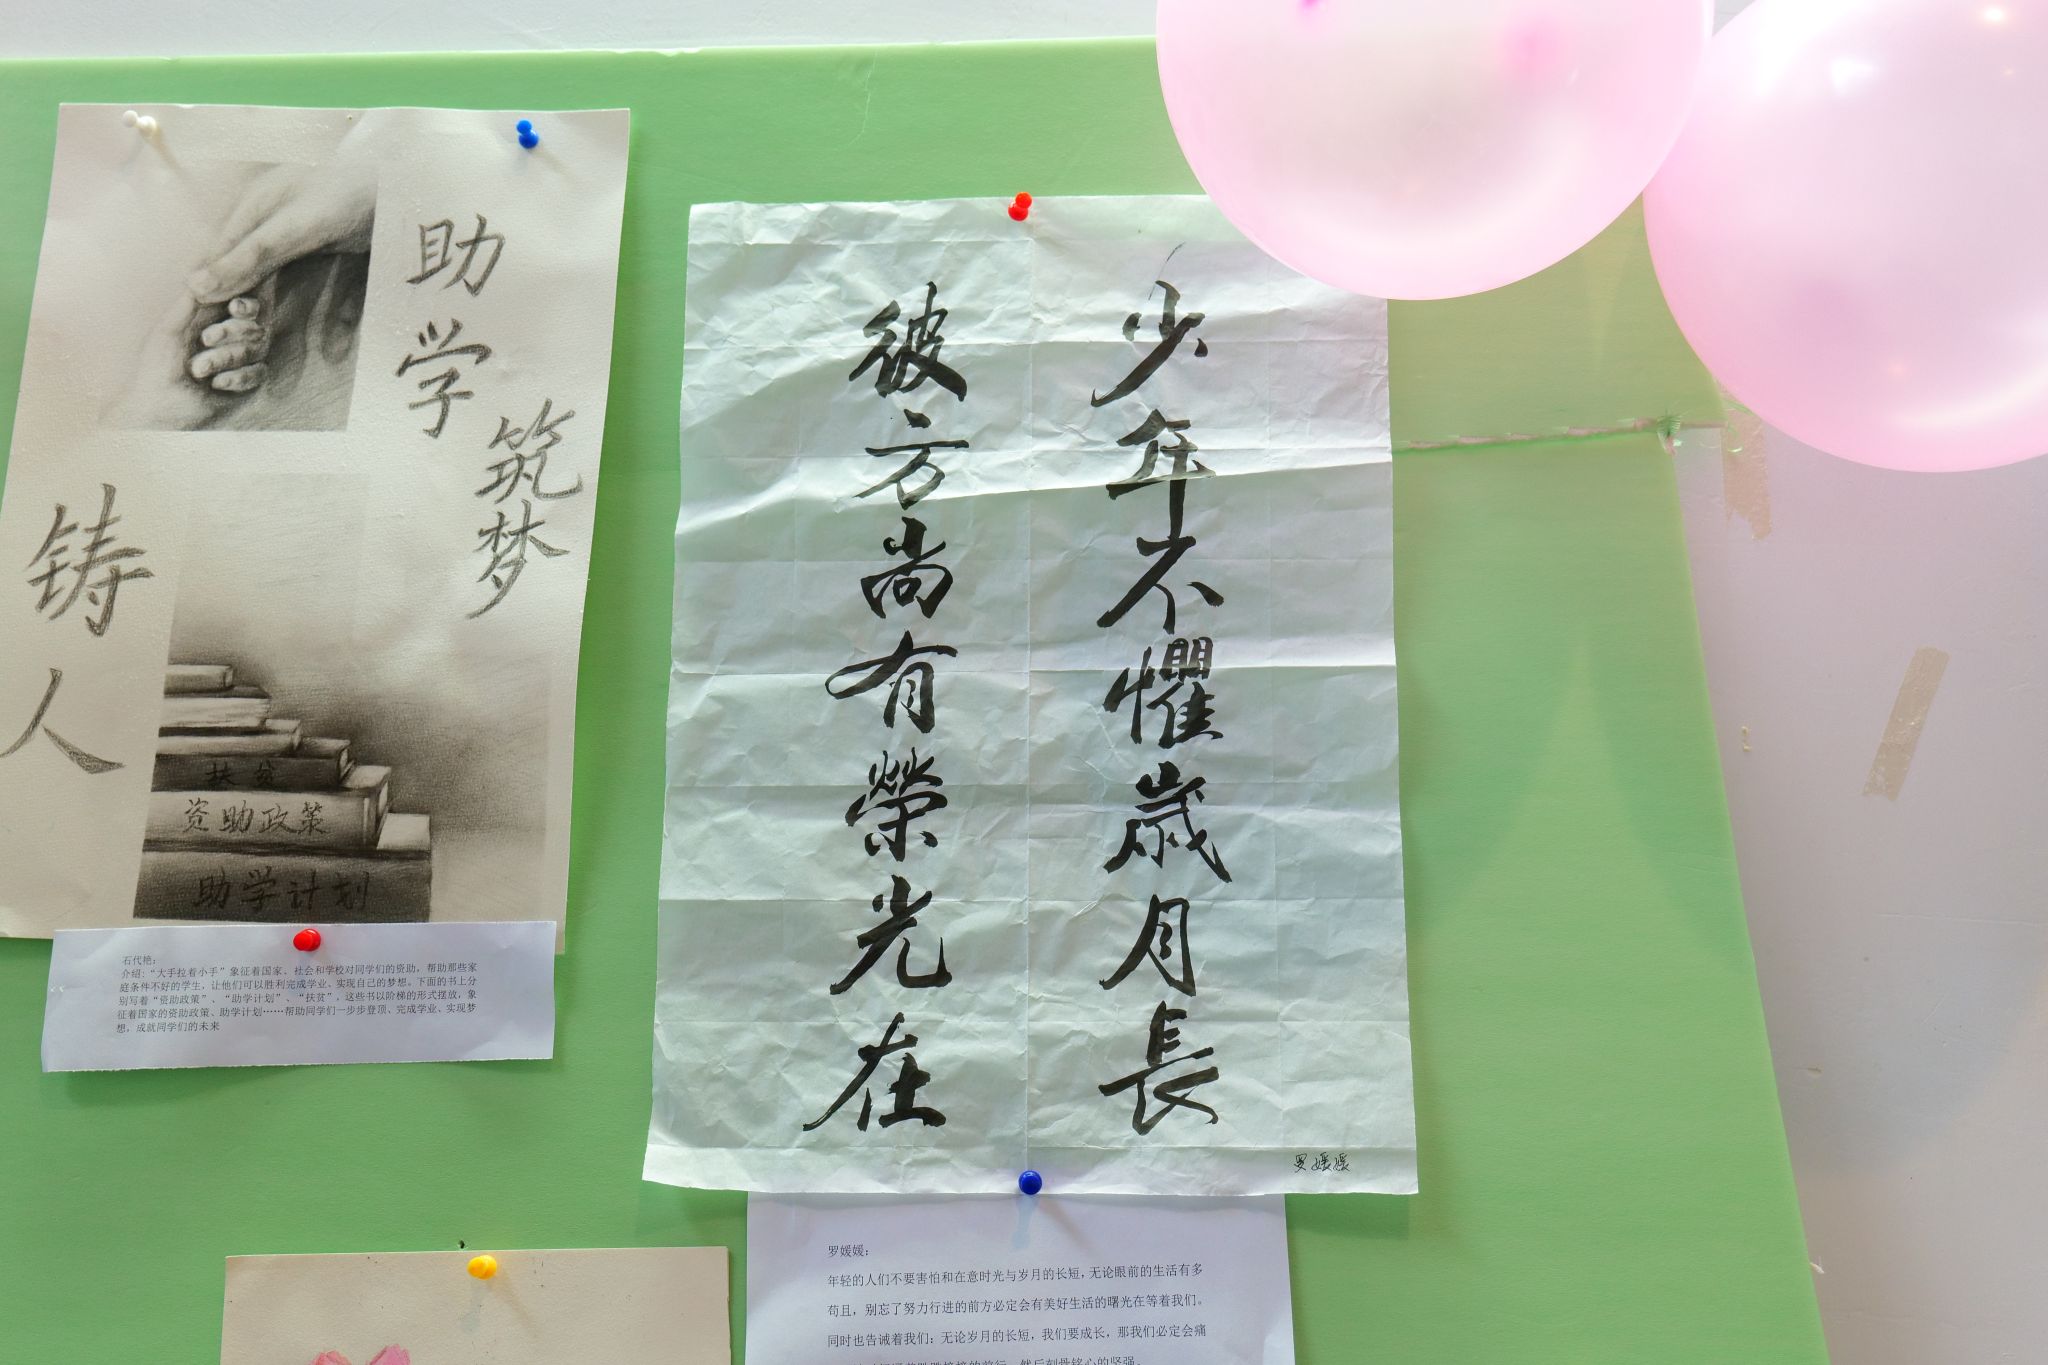 助学
筑梦
铸人
扶贫
资助政策
助学计划
石代艳：
介绍：“大手拉着小手”象征着国家、社会和学校对同学们的资助，帮助那些家
庭条件不好的学生，让他们可以胜利完成学业、实现自己的梦想。下面的书上分
别写着“资助政策”、“助学计划”、“扶贫”，这些书以阶梯的形式摆放，象
征着国家的资助政策、助学计划……帮助同学们一步步登顶、完成学业、实现梦
想，成就同学们的未来
少年不懼歲月長
彼方尚有榮光在
罗媛媛
罗媛媛：
年轻的人们不要害怕和在意时光与岁月的长短，无论眼前的生活有多
苟且，别忘了努力行进的前方必定会有美好生活的曙光在等着我们。
同时也告诫着我们：无论岁月的长短，我们要成长，那我们必定会痛
的前行，然后刻骨铭心的坚强。